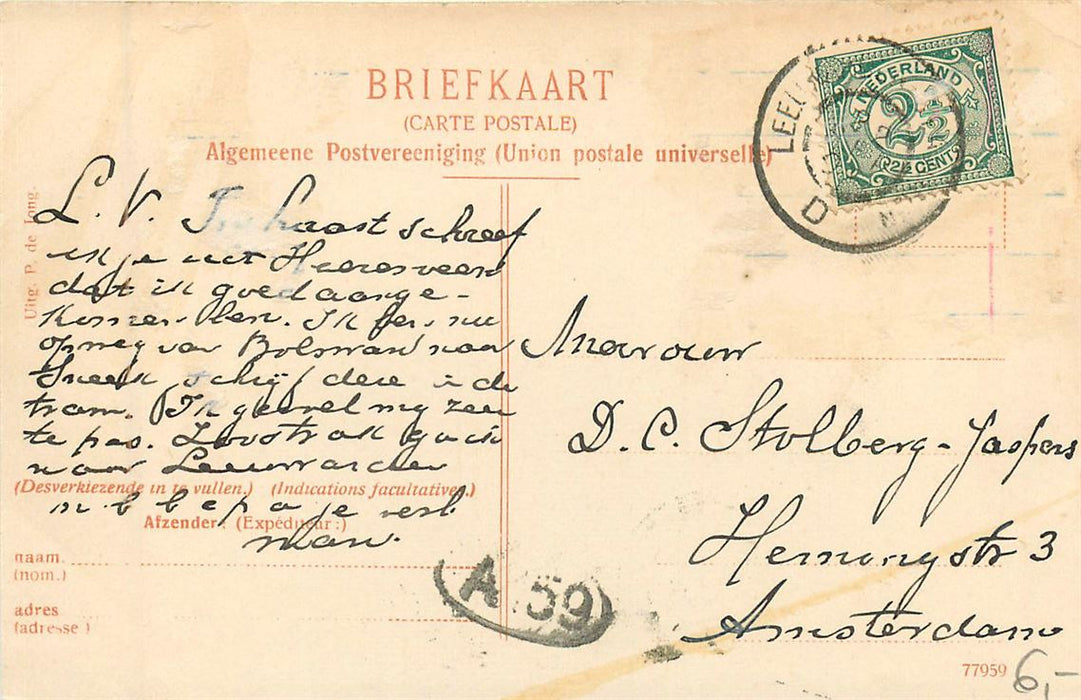 BRIEFKAART
(CARTE POSTALE)
Algemeene Postvereeniging (Union postale universelle)
NEDERLAND
2½
2½ CENT
LEEU
D
N
Uitg. P. de Jong.
L. V. In haast schreef
ik je uit Heerenveen
dat ik goed aange-
komen ben. Ik ben nu
opweg van Bolsward naar
Sneek schrijf deze in de
tram. Ik gevoel mij zeer
te pas. Zoostrak ga ik
naar Leeuwarden
(Desverkiezende in te vullen.) (Indications facultatives.)
je
man.
Afzender: (Expéditeur:)
naam.
(nom.)
adres
(adresse)
Mevrouw
D. C. Stolberg-Jaspers
Hemonystr 3
Amsterdam
A 59
77959
6,-